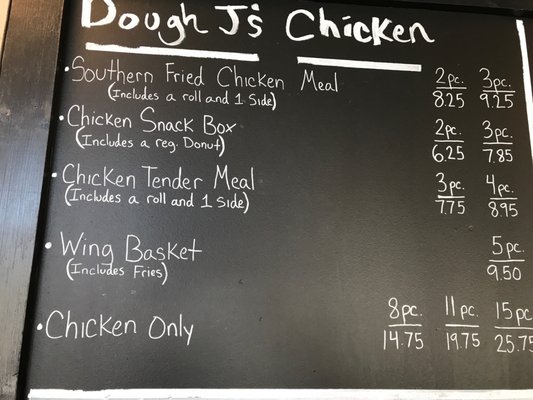 Dough J's Chicken
• Southern Fried Chicken Meal 2pc. 3pc.
(Includes a roll and 1 Side) 8.25 9.25
• Chicken Snack Box 2pc. 3pc.
(Includes a reg. Donut) 6.25 7.85
• Chicken Tender Meal 3pc. 4pc.
(Includes a roll and 1 Side) 7.75 8.95
• Wing Basket 5pc.
(Includes Fries) 9.50
• Chicken Only 8pc. 11pc. 15pc
14.75 19.75 25.75